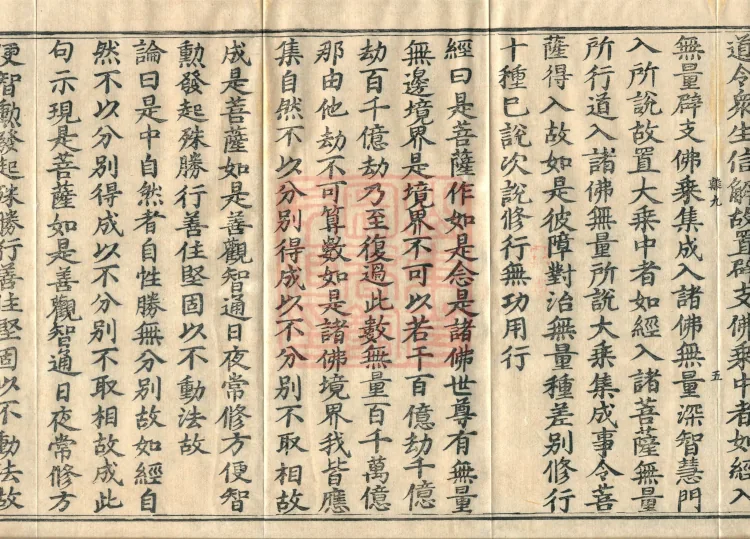 道令眾生信解故置辟支佛乘中者如經入
無量辟支佛乘集成入諸佛無量深智慧門
入所說故置大乘中者如經入諸菩薩無量
所行道入諸佛無量所說大乘集成事令菩
薩得入故如是彼障對治無量種差別修行
十種已說次說修行無功用行
經曰是菩薩作如是念是諸佛世尊有無量
無邊境界是境界不可以若干百億劫千億
劫百千億劫乃至復過此數無量百千萬億
那由他劫不可算數如是諸佛境界我皆應
集自然不以分別得成以不分別不取相故
成是菩薩如是善觀智通日夜常修方便智
勳發起殊勝行善住堅固以不動法故
論曰是中自然者自性勝無分別故如經自
然不以分別得成以不分別不取相故成此
句示現是菩薩如是善觀智通日夜常修方
便智勳發起殊勝行善住堅固以不動法故
九
五